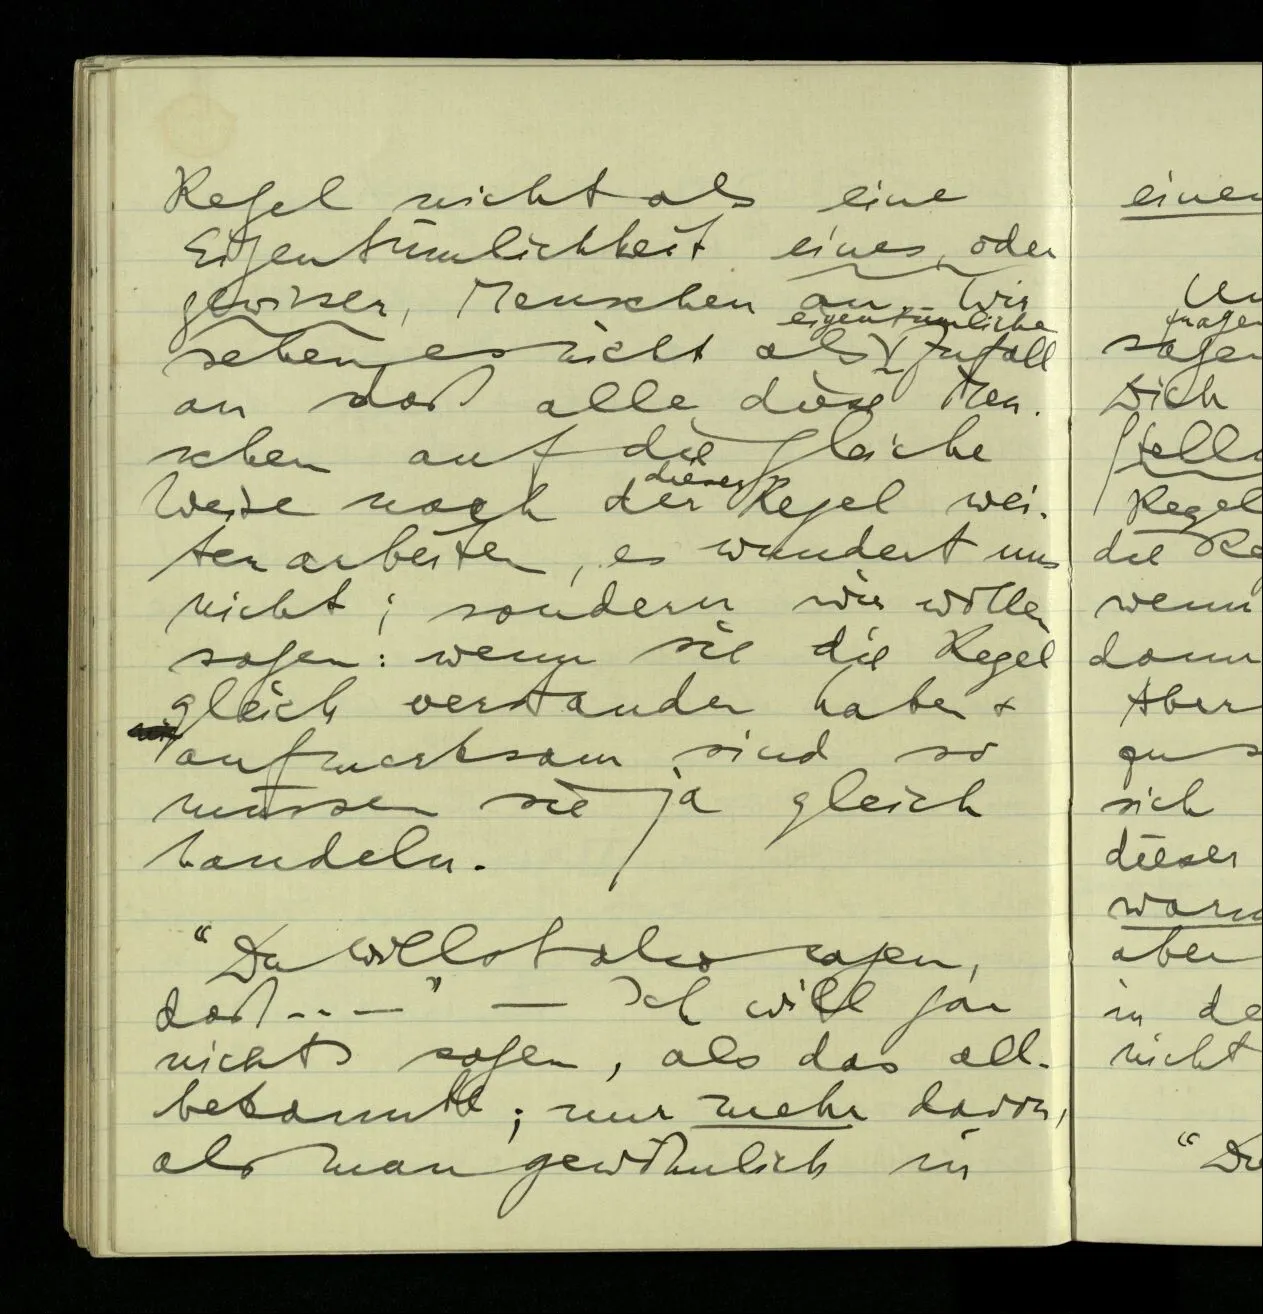 Regel nicht als eine
Eigentümlichkeit eines, oder
gewisser, Menschen an. Wir
eigentümliche
sehen es nicht als Zufall
an daß alle diese Men-
schen auf die gleiche
dieser
Weise nach der Regel wei-
terarbeiten, es wundert uns
nicht; sondern wir wollen
sagen: wenn sie die Regel
gleich verstanden haben +
aufmerksam sind so
müssen sie ja gleich
handeln.
“Du willst also sagen,
daß ... –” — Ich will gar
nichts sagen, als das all-
bekannte; nur mehr davon,
als man gewöhnlich in
einen
fragen
sagen
Dich
Regel
die Re
wenn
dann
Aber
zu s
sich
dieser
aber
in de
nicht
“Du